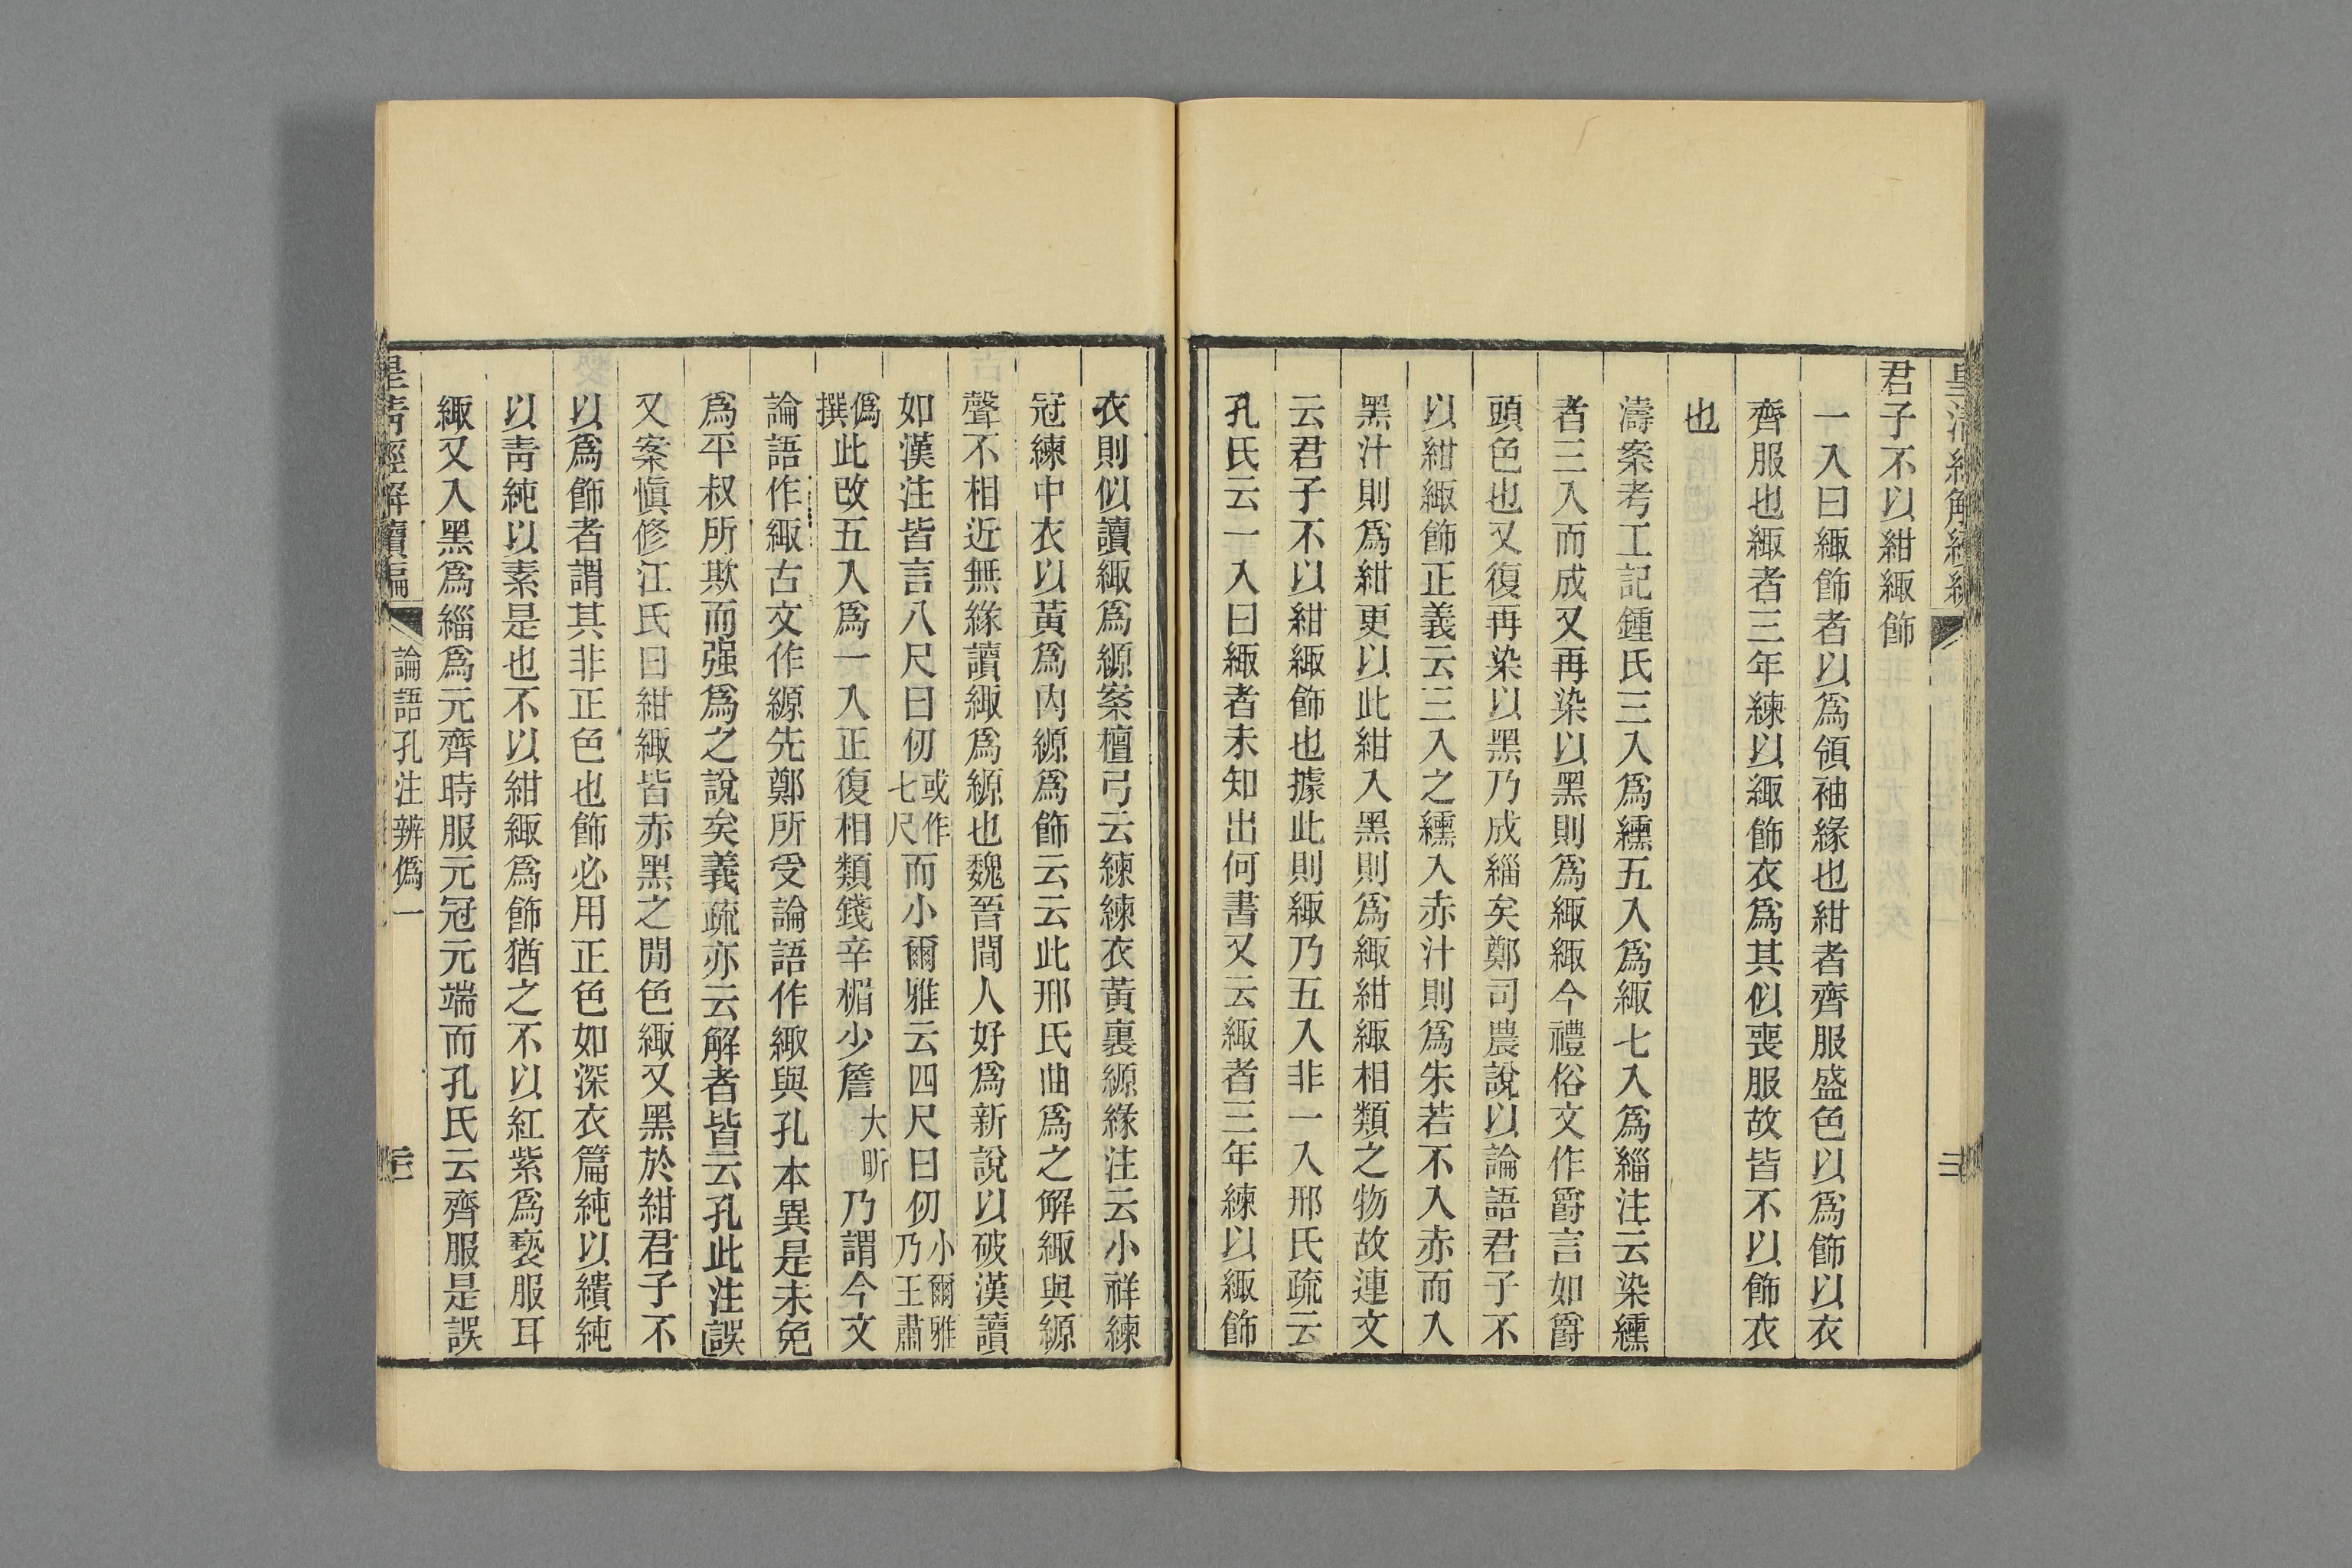 皇清經解續編
三
君子不以紺緅飾
一入曰緅飾者以爲領袖緣也紺者齊服盛色以爲飾以衣
齊服也緅者三年練以緅飾衣爲其似喪服故皆不以飾衣
也
濤案考工記鍾氏三入爲纁五入爲緅七入爲緇注云染纁
者三入而成又再染以黑則爲緅緅今禮俗文作爵言如爵
頭色也又復再染以黑乃成緇矣鄭司農說以論語君子不
以紺緅飾正義云三入之纁入赤汁則爲朱若不入赤而入
黑汁則爲紺更以此紺入黑則爲緅紺緅相類之物故連文
云君子不以紺緅飾也據此則緅乃五入非一入邢氏疏云
孔氏云一入曰緅者未知出何書又云緅者三年練以緅飾
衣則似讀緅爲縓案檀弓云練練衣黃裏縓緣注云小祥練
冠練中衣以黃爲內縓爲飾云云此邢氏曲爲之解緅與縓
聲不相近無緣讀緅爲縓也魏晉間人好爲新說以破漢讀
如漢注皆言八尺曰仞或作七尺而小爾雅云四尺曰仞小爾雅乃王肅
僞撰此改五入爲一入正復相類錢辛楣少詹大昕乃謂今文
論語作緅古文作縓先鄭所受論語作緅與孔本異是未免
爲平叔所欺而强爲之說矣義疏亦云解者皆云孔此注誤
又案愼修江氏曰紺緅皆赤黑之閒色緅又黑於紺君子不
以爲飾者謂其非正色也飾必用正色如深衣篇純以繢純
以靑純以素是也不以紺緅爲飾猶之不以紅紫爲褻服耳
緅又入黑爲緇爲元齊時服元冠元端而孔氏云齊服是誤
皇清經解續編
論語孔注辨僞一
三